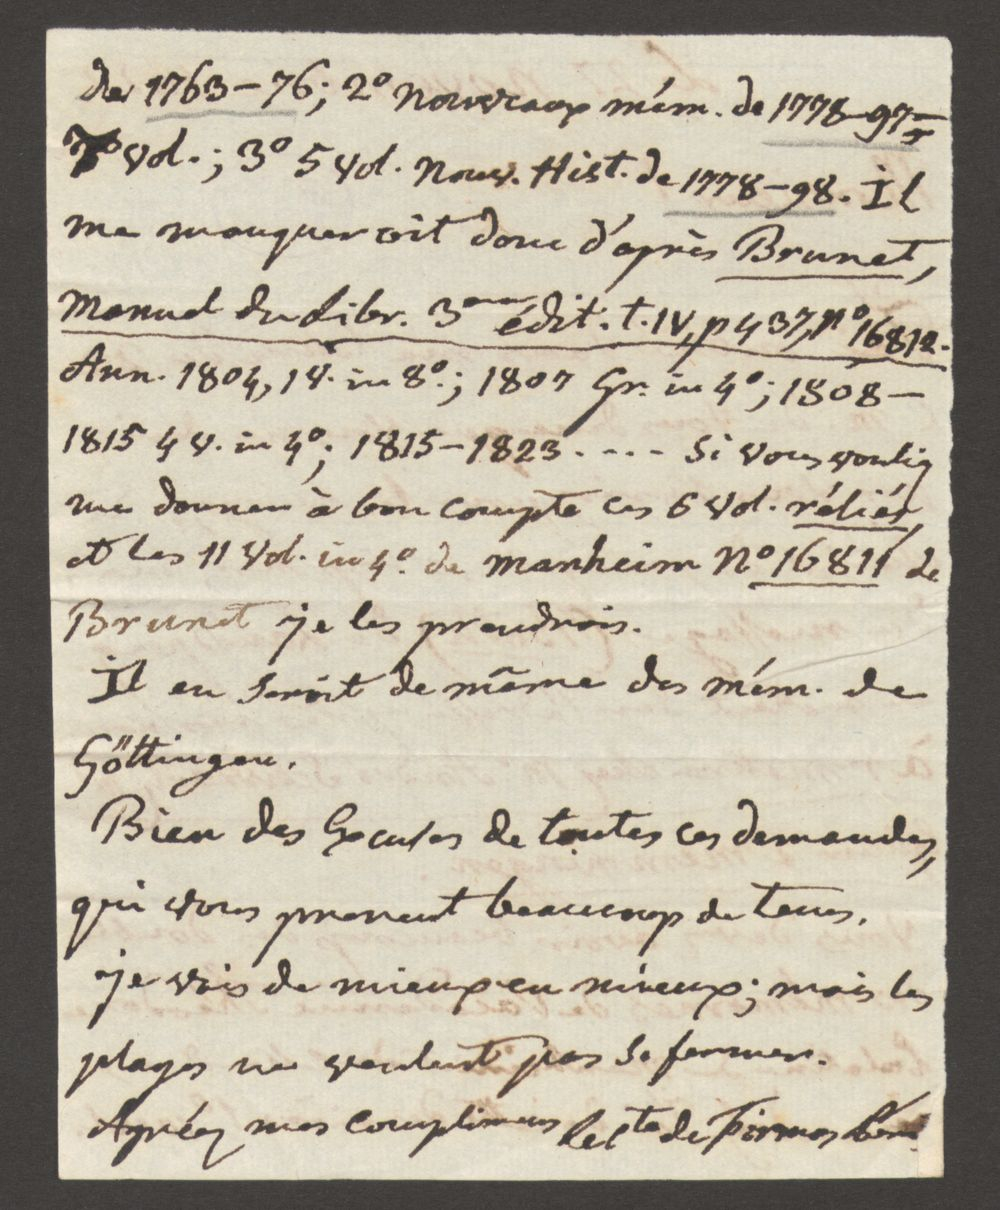 de 1763-76; 2° nouveaux mém. de 1778-97
7 vol.; 3° 5 vol. nouv. Hist. de 1778-98. Il
me manqueroit donc d'après Brunet,
Manuel du Libr. 3me édit. t. IV, p 437, n° 16812.
Ann. 1804, 1 v. in 8°.; 1807 Gr. in 4°; 1808-
1815 4 v. in 4°; 1815-1823. ... Si vous vouliez
me donner à bon compte ces 6 vol. réliés,
et les 11 vol. in 4°. de manheim N° 16811 de
Brunet je les prendrois.
Il en seroit de même des mém. de
Göttingen.
Bien des Excuses de toutes ces demandes,
qui vous prennent beaucoup de tems.
je vois de mieux en mieux; mais les
plages ne veulent pas se fermer.
Agréez mes complimens le Cte de Firmas